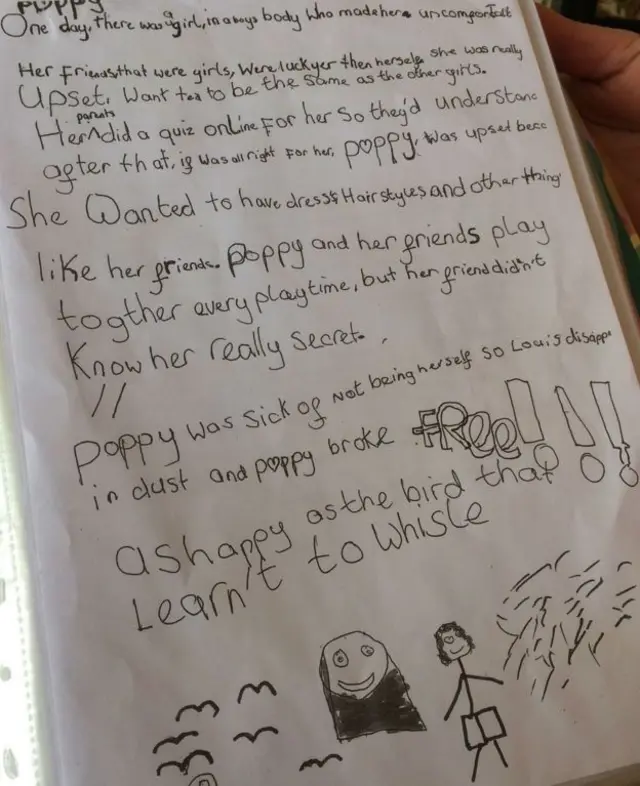 poppy
One day, there was a girl, in a boys body who made her uncomfortable
Her Friends that were girls, Were luckyer then herself she was really
Upset. Want ted to be the same as the other girls.
parents
Her ʌ did a quiz online For her So they'd understand
after that, it was all right For her, poppy, was upset beca
She Wanted to have dress$ Hair styles and other thing
like her friends. poppy and her friends play
togther every playtime, but her friend didn't
Know her really secret.
//
poppy was sick of not being herself so Louis disappe
in dust and poppy broke FRee!!!
as happy as the bird that
Learn't to whisle